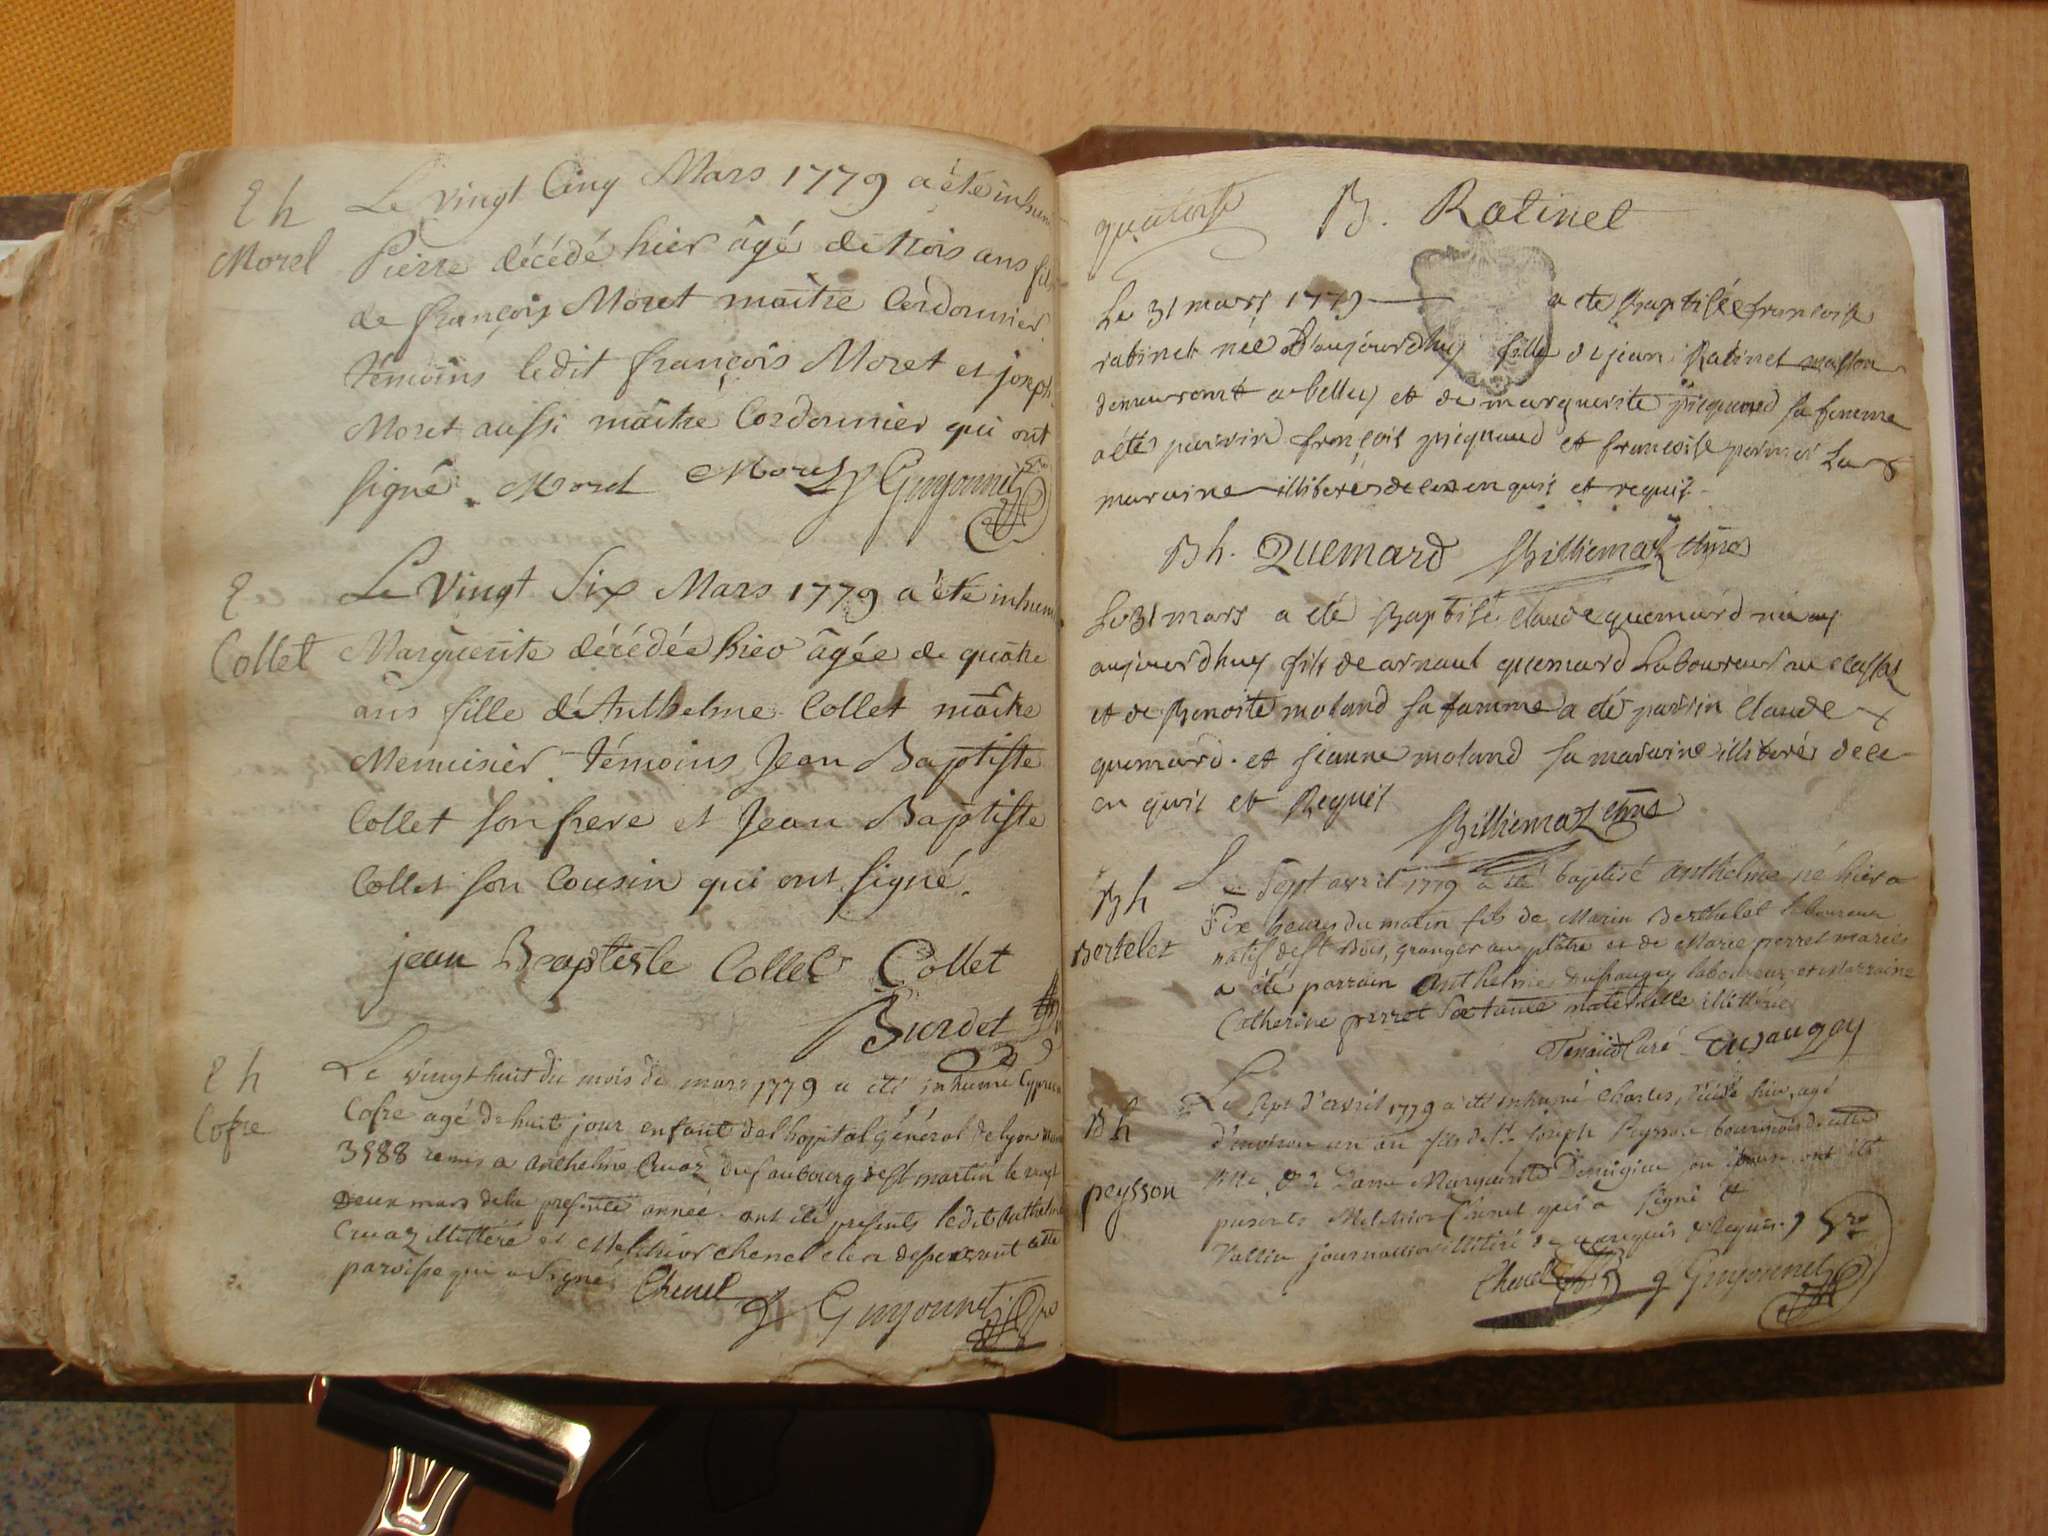 Eh
Morel
Le vingt Cinq Mars 1779 a été inhumé
Pierre décédé hier âgé de trois ans fils
de françois Moret maître Cordonnier
témoins ledit françois Moret et joseph
Moret aussi maître Cordonnier qui ont
signé. Morel Morel Guyonnet
E
Collet
Le Vingt Six Mars 1779 a été inhumé
Marguerite décédée hier âgée de quatre
ans fille d'Anthelme Collet maître
Menuisier. témoins Jean Baptiste
Collet son frere et Jean Baptiste
Collet son Cousin qui ont signé.
jean Baptiste Collet Collet
Burdet
Eh
Cofre
Le vingt huit du mois de mars 1779 a été inhumé
Cofre agé de huit jour enfant de l'hopital général de lyon
3588 remis a anthelme Cruaz du faubourg de st martin le vingt
Deux mars de la presente année. ont été presents ledit Anthelme
Cruaz illittéré et Melchior chenel clerc desservant cette
paroisse qui a signé Chenel Guyonnet
quatorse
B. Ratinet
Le 31 mars 1779 a ete Baptisée francoise
ratinet née d'aujourdhuy fille de jean Ratinet masson
demeurant a belley et de marguerite pieguaud sa femme
a été parrin françois pieguaud et francoise La
maraine illiteres de ce enquis et requis
Bh. Quemard Billiemaz
Le 31 mars a été Baptisé Claude quemard né
aujourdhuy fils de arnaut quemard Laboureur au
et de Benoite moland sa famme a été parrin Claude
quemard. et jeanne moland sa maraine illiteré de ce
enquis et Requis
Billiemaz
Bh
Bertelet
Le Sept avril 1779 a été baptisé anthelme né hier a
six heures du matin fils de Marin Berthelet laboureur
natif de st Bois, granger au plâtre et de Marie perret mariés
a été parrain anthelme dujaugey laboureur et marraine
Catherine perret sa tante maternelle illitérée
Tenaud Curé Dujaugey
Bh
peysson
Le Sept d'avril 1779 a été inhumé Charles, décédé hier, agé
d'environ un an fils de Sr. Joseph Peysson bourgeois de cette
Ville, & de Dame Marguerite son épouse ont été
presents Melchior Chenel qui a signé &
Vallin journallier illitéré de ce enquis & Requis.
Chenel Guyonnet